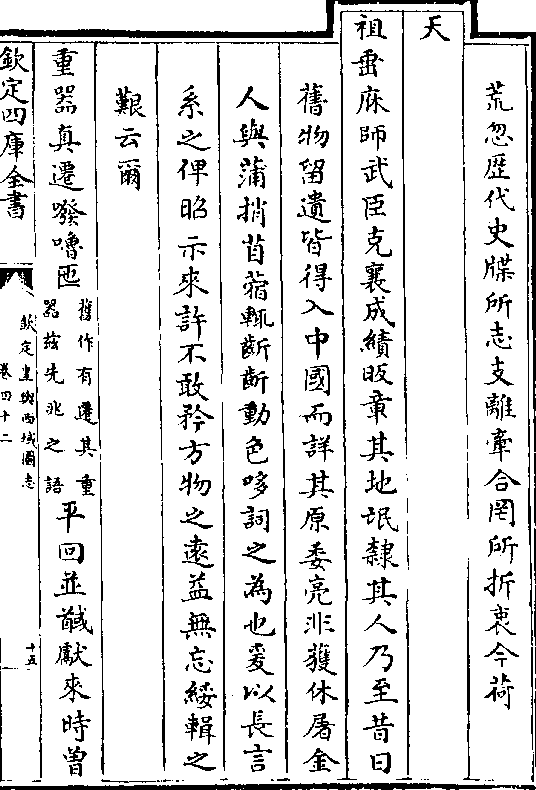 荒忽歴代史牒所志支離牽合罔所折衷今荷
天
祖垂庥師武臣克襄成績昄章其地氓隸其人乃至昔日
舊物留遺皆得入中國而詳其原委亮非獲休屠金
人與蒲捎苜蓿輒齗齗動色哆詞之為也爰以長言
系之俾昭示來許不敢矜方物之遠益無忘綏輯之
艱云爾
重器真遷噶嚕匜
舊作有遷其重
器兹先兆之語
平回並馘獻來時曽
欽定四庫全書
欽定皇輿西域圖志
卷四十二
十五